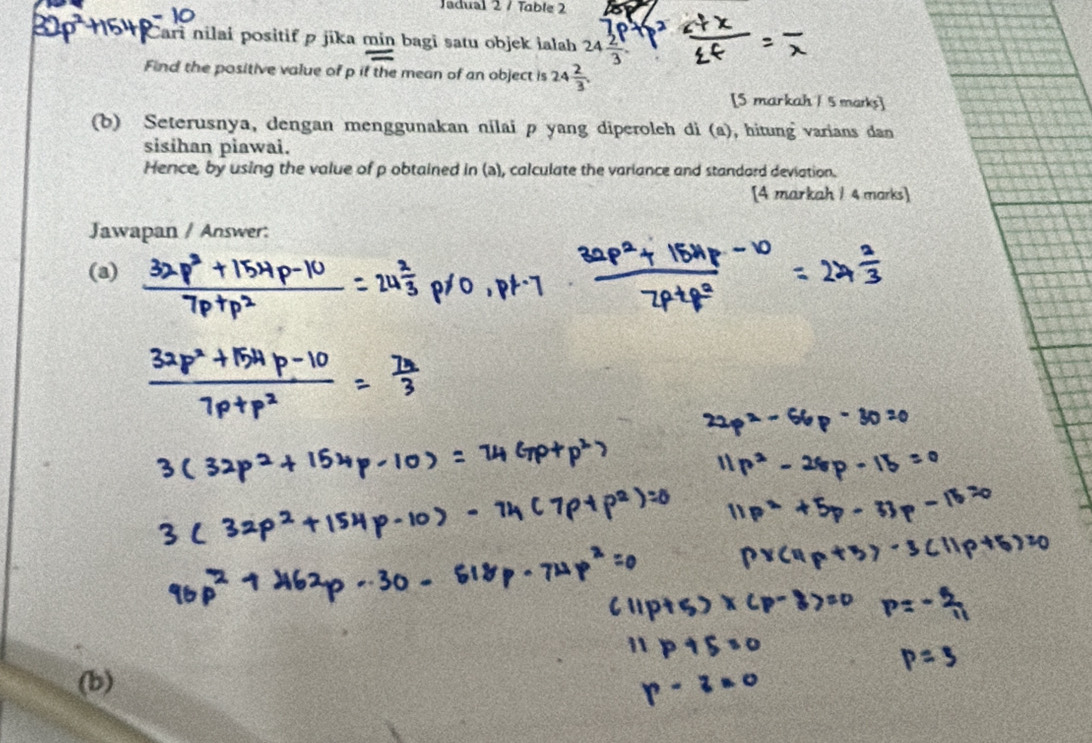 Jadual 2 / Table 2
32p² + 154p - 10
7p + p²
= x̄
Cari nilai positif p jika min bagi satu objek ialah 24 2/3.
Find the positive value of p if the mean of an object is 24 2/3.
[5 markah / 5 marks]
(b) Seterusnya, dengan menggunakan nilai p yang diperoleh di (a), hitung varians dan
sisihan piawai.
Hence, by using the value of p obtained in (a), calculate the variance and standard deviation.
[4 markah / 4 marks]
Jawapan / Answer:
(a) (32p² + 154p - 10)/(7p + p²) = 24 2/3 p≠0, p≠-7 (32p² + 154p - 10)/(7p + p²) = 24 2/3
(32p² + 154p - 10)/(7p + p²) = 74/3
3(32p² + 154p - 10) = 74(7p + p²)
3(32p² + 154p - 10) - 74(7p + p²) = 0
96p² + 462p - 30 - 518p - 74p² = 0
22p² - 56p - 30 = 0
11p² - 28p - 15 = 0
11p² + 5p - 33p - 15 = 0
p×(11p + 5) - 3(11p + 5) = 0
(11p + 5) × (p - 3) = 0 p = -5/11
11p + 5 = 0
p = 3
p - 3 = 0
(b)